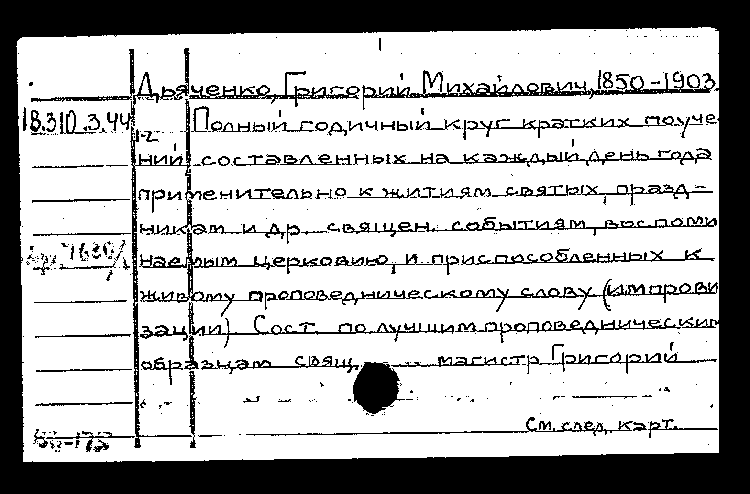 Дьяченко, Григорий Михайлович, 1850-1903.
18.310.3.44
1-2
Полный годичный круг кратких поуче
ний, составленных на каждый день года
применительно к житиям святых, празд-
никам и др. священ. событиям, воспоми
наемым церковию, и приспособленных к
живому проповедническому слову (импрови
зации). Сост. по лучшим проповедническим
образцам свящ. магистр Григорий
См. след. карт.